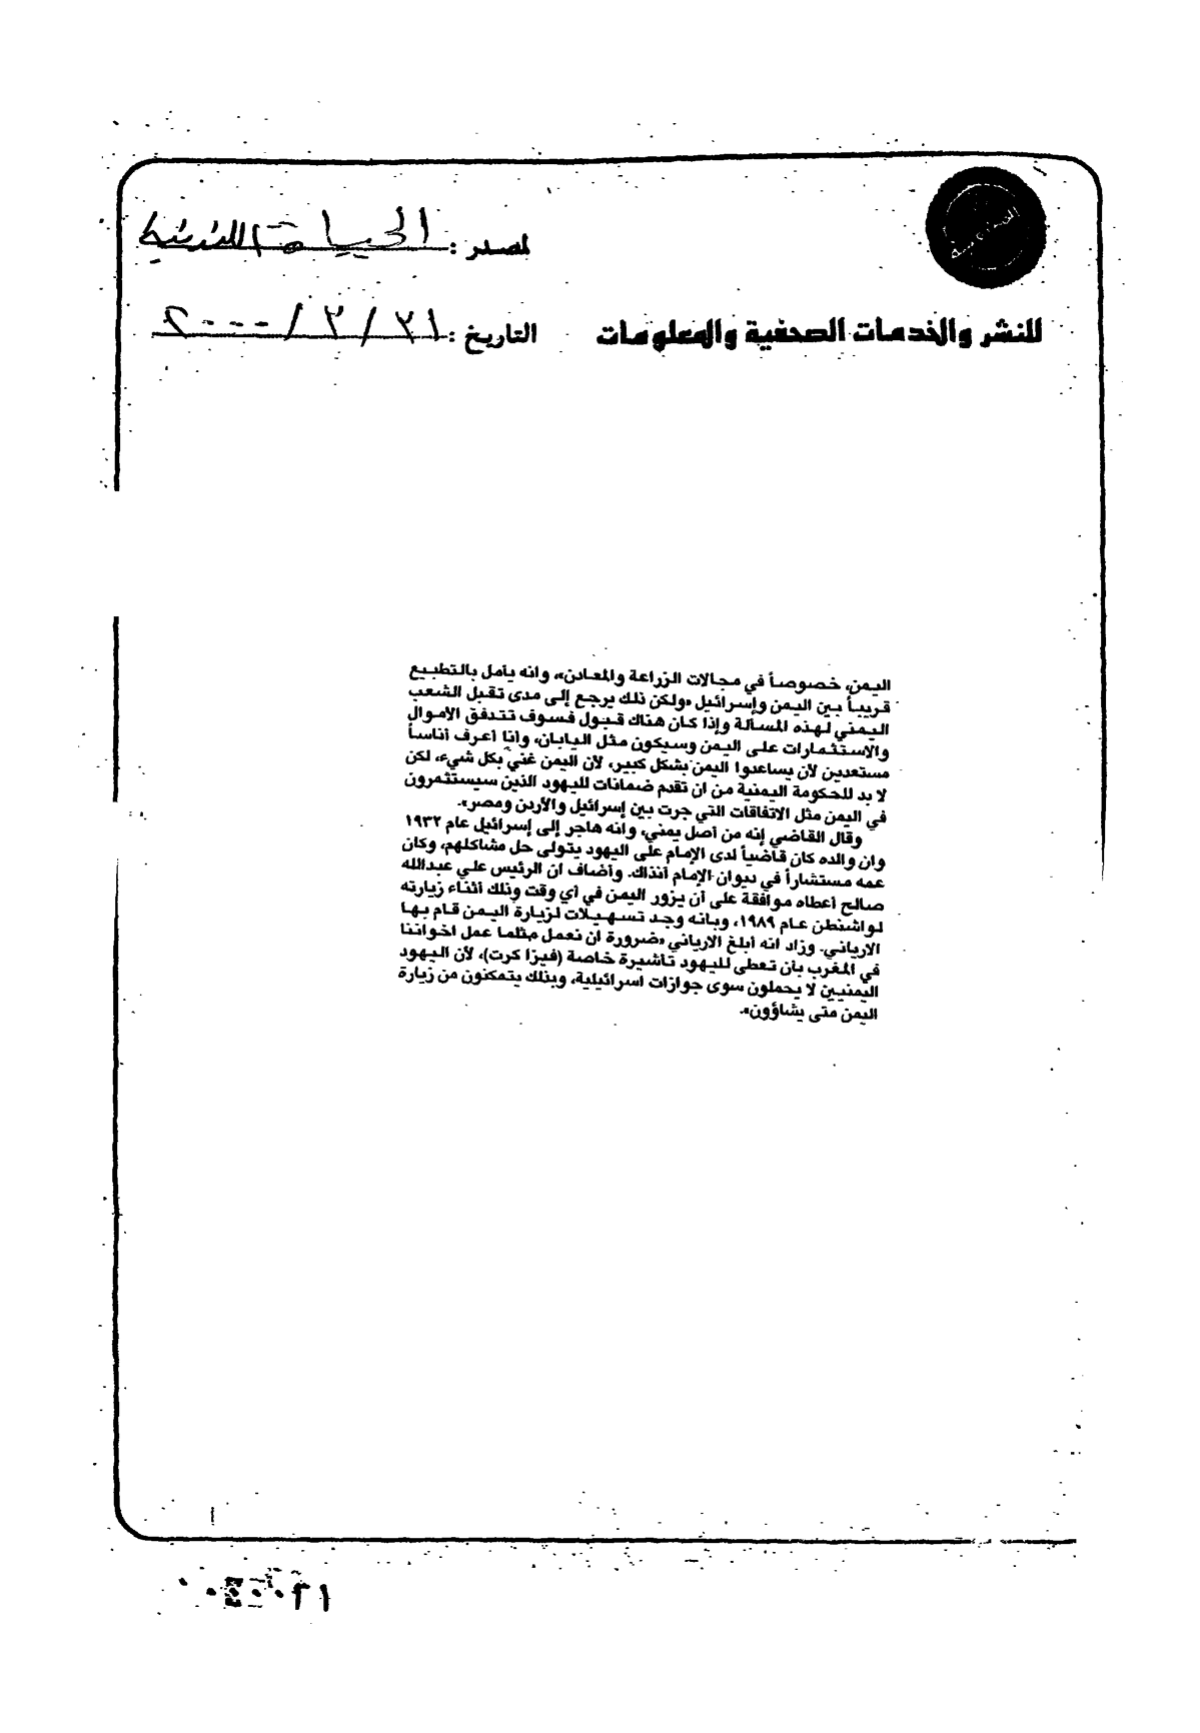 لمصدر : الحياة اللندنية
للنشر والخدمات الصحفية والمعلومات
التاريخ : ٢١ / ٣ / ٢٠٠٠
اليمن، خصوصاً في مجالات الزراعة والمعادن»، وانه يأمل بالتطبيع
قريباً بين اليمن وإسرائيل «ولكن ذلك يرجع إلى مدى تقبل الشعب
اليمني لهذه المسألة وإذا كان هناك قبول فسوف تتدفق الأموال
والاستثمارات على اليمن وسيكون مثل اليابان، وأنا أعرف أناساً
مستعدين لأن يساعدوا اليمن بشكل كبير، لأن اليمن غني بكل شيء، لكن
لا بد للحكومة اليمنية من ان تقدم ضمانات لليهود الذين سيستثمرون
في اليمن مثل الاتفاقات التي جرت بين إسرائيل والأردن ومصر».
وقال القاضي إنه من أصل يمني، وانه هاجر إلى إسرائيل عام ١٩٣٢
وان والده كان قاضياً لدى الإمام على اليهود يتولى حل مشاكلهم، وكان
عمه مستشاراً في ديوان الإمام آنذاك. وأضاف ان الرئيس علي عبدالله
صالح أعطاه موافقة على أن يزور اليمن في أي وقت وذلك أثناء زيارته
لواشنطن عام ١٩٨٩، وبانه وجد تسهيلات لزيارة اليمن قام بها
الارياني. وزاد انه أبلغ الارياني «ضرورة ان نعمل مثلما عمل اخواننا
في المغرب بأن تعطى لليهود تأشيرة خاصة (فيزا كرت)، لأن اليهود
اليمنيين لا يحملون سوى جوازات اسرائيلية، وبذلك يتمكنون من زيارة
اليمن متى يشاؤون».